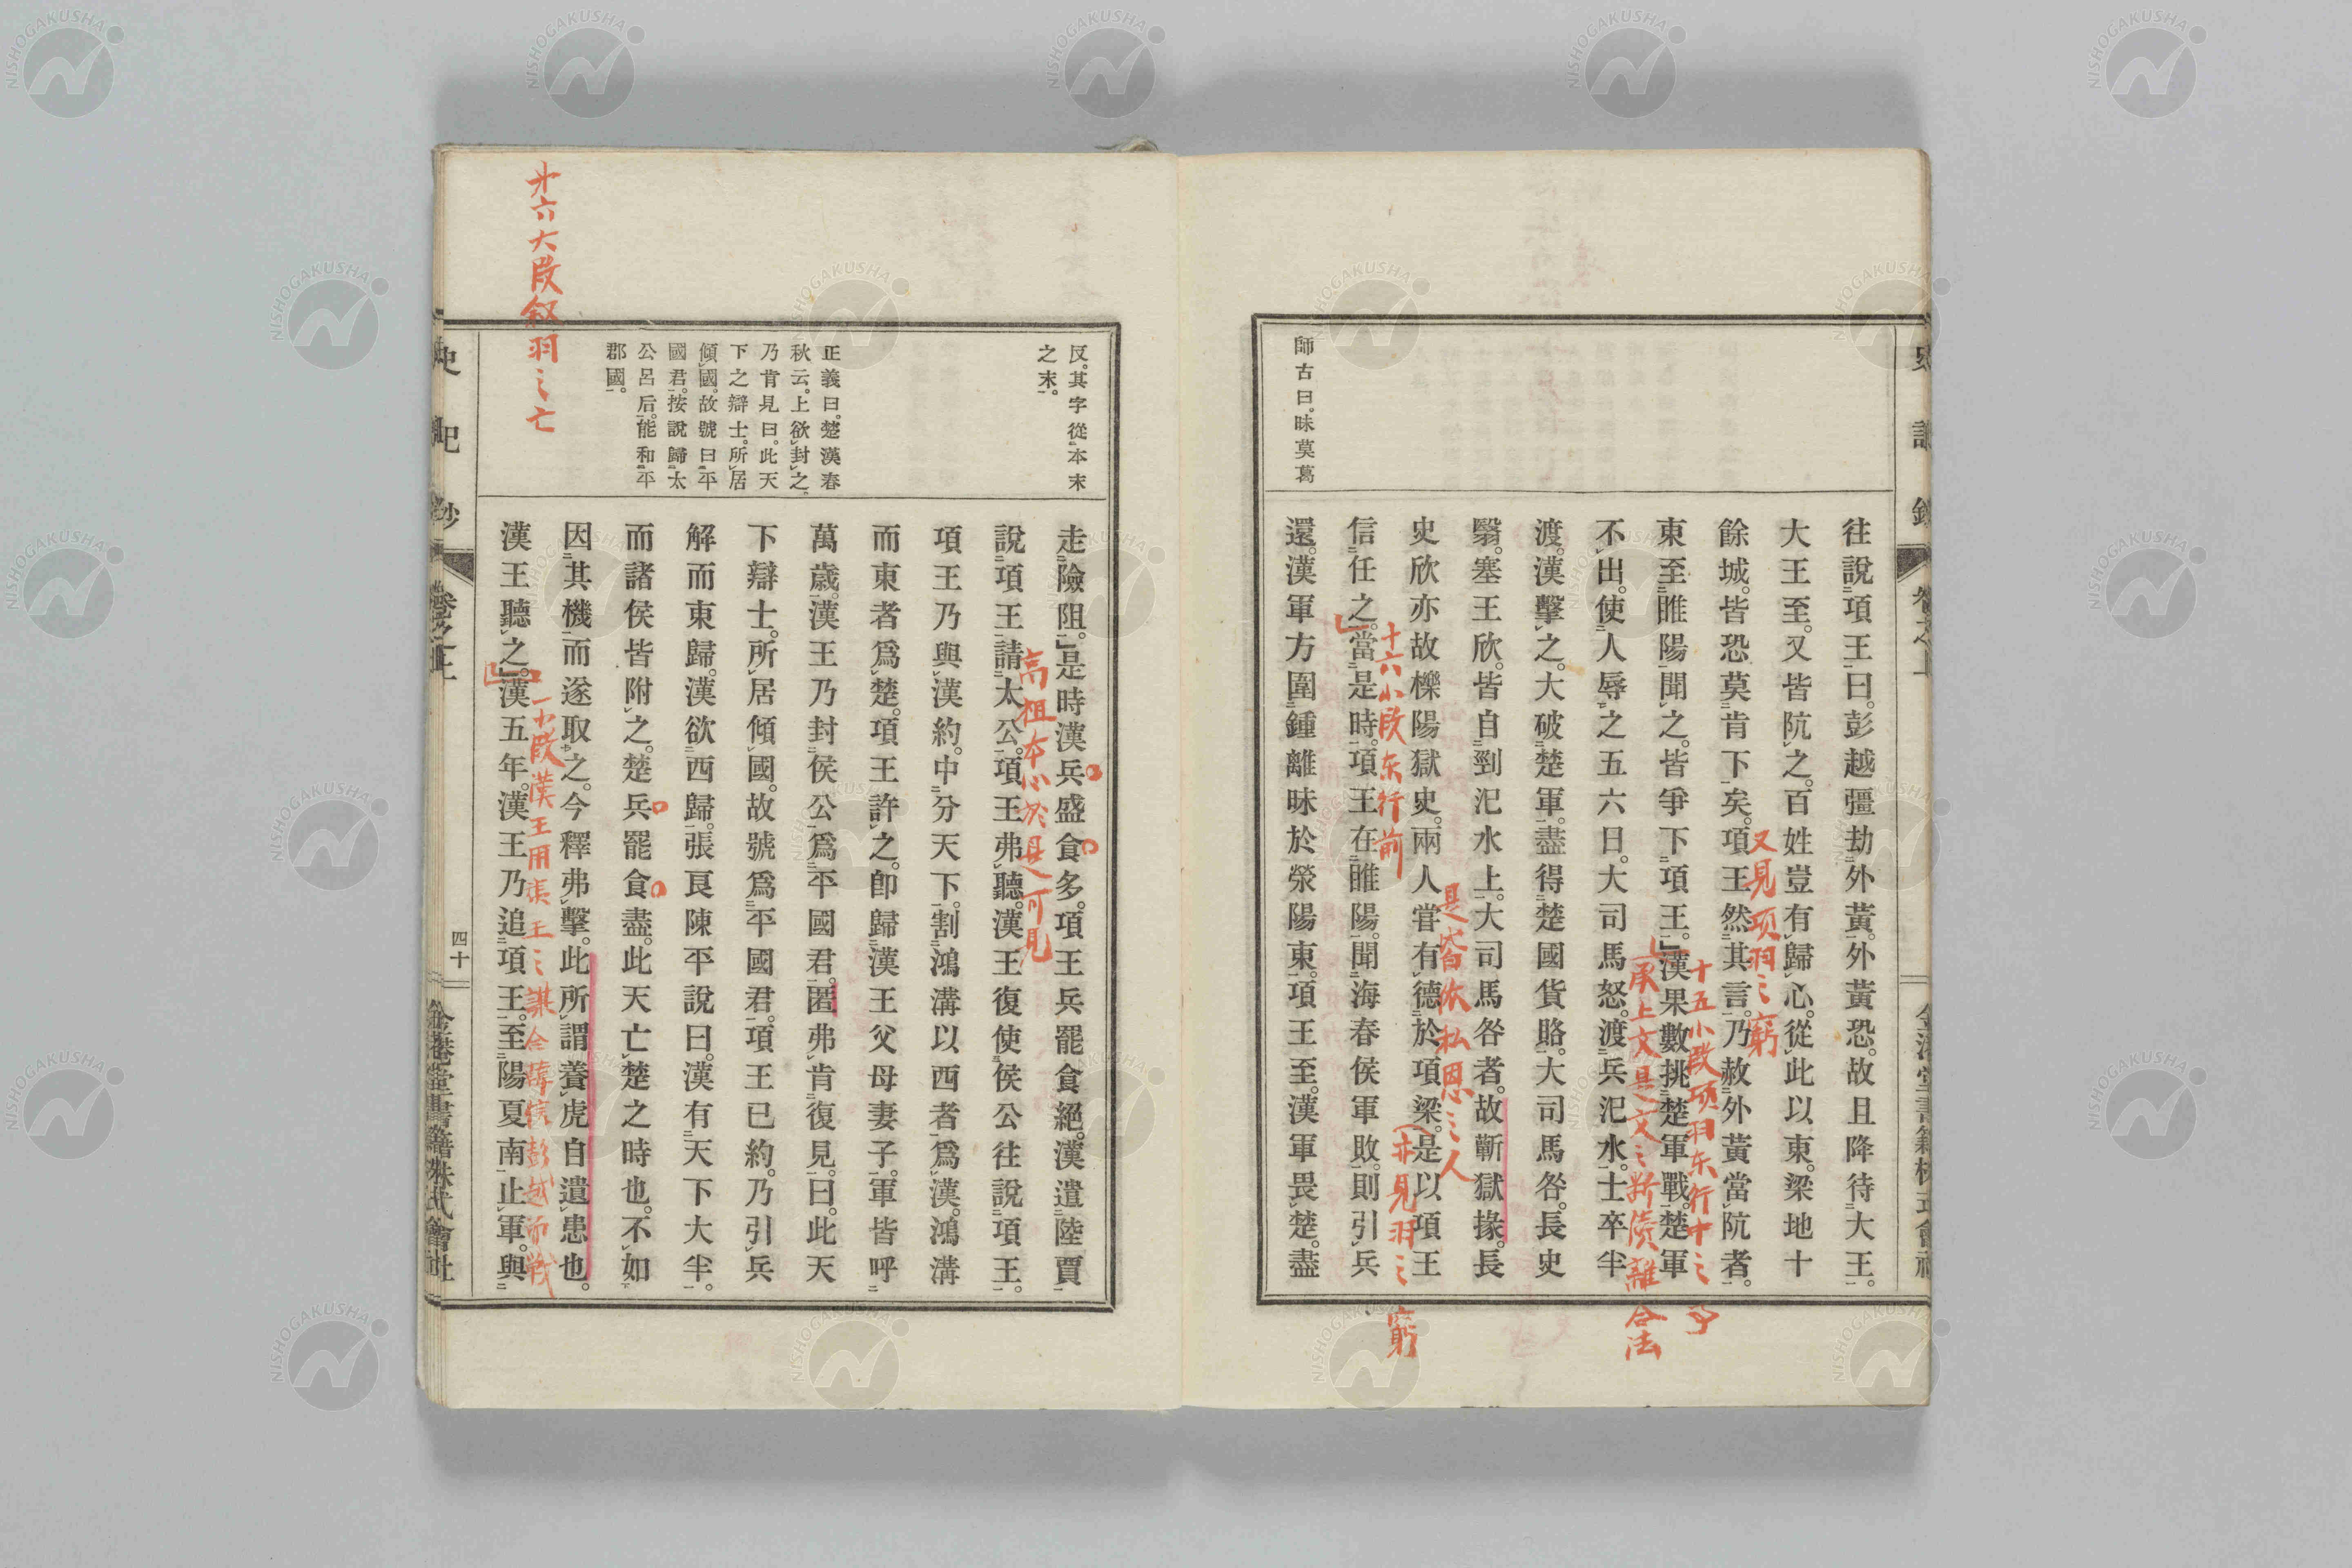 師古曰。昧莫葛
往說項王曰。彭越彊劫外黃。外黃恐。故且降待大王。
大王至。又皆阬之。百姓豈有歸心。從此以東。梁地十
餘城。皆恐莫肯下矣。項王然其言。乃赦外黃當阬者。
又見項羽之窮
東至睢陽聞之。皆爭下項王。」漢果數挑楚軍戰。楚軍
十五小段項羽东行中之
不出。使人辱之五六日。大司馬怒。渡兵汜水。士卒半
渡。漢擊之。大破楚軍。盡得楚國貨賂。大司馬咎。長史
翳。塞王欣。皆自剄汜水上。大司馬咎者。故蘄獄掾。長
史欣亦故櫟陽獄史。兩人嘗有德於項梁。是以項王
是皆依私恩之人
亦見羽之窮
信任之。當是時。項王在睢陽。聞海春侯軍敗。則引兵
十六小段东行前
還。漢軍方圍鍾離昧於滎陽東。項王至。漢軍畏楚。盡
反。其字從本末
之末。
正義曰。楚漢春
秋云。上欲封之、
乃肯見曰。此天
下之辯士。所居
傾國。故號曰平
國君。按說歸太
公呂后。能和平
郡國。
走險阻。」是時漢兵盛食多。項王兵罷食絕。漢遣陸賈
說項王請太公。項王弗聽。漢王復使侯公往說項王。
高祖本心於是可見
項王乃與漢約。中分天下。割鴻溝以西者爲漢。鴻溝
而東者爲楚。項王許之。卽歸漢王父母妻子。軍皆呼
萬歲。漢王乃封侯公爲平國君。匿弗肯復見。曰。此天
下辯士。所居傾國。故號爲平國君。項王已約。乃引兵
解而東歸。漢欲西歸。張良陳平說曰。漢有天下大半。
而諸侯皆附之。楚兵罷食盡。此天亡楚之時也。不如
因其機而遂取之。今釋弗擊。此所謂養虎自遺患也。
漢王聽之。」漢五年。漢王乃追項王。至陽夏南止軍。與
才六大段叙羽之亡
史記鈔
卷之上
四十
金港堂書籍株式會社